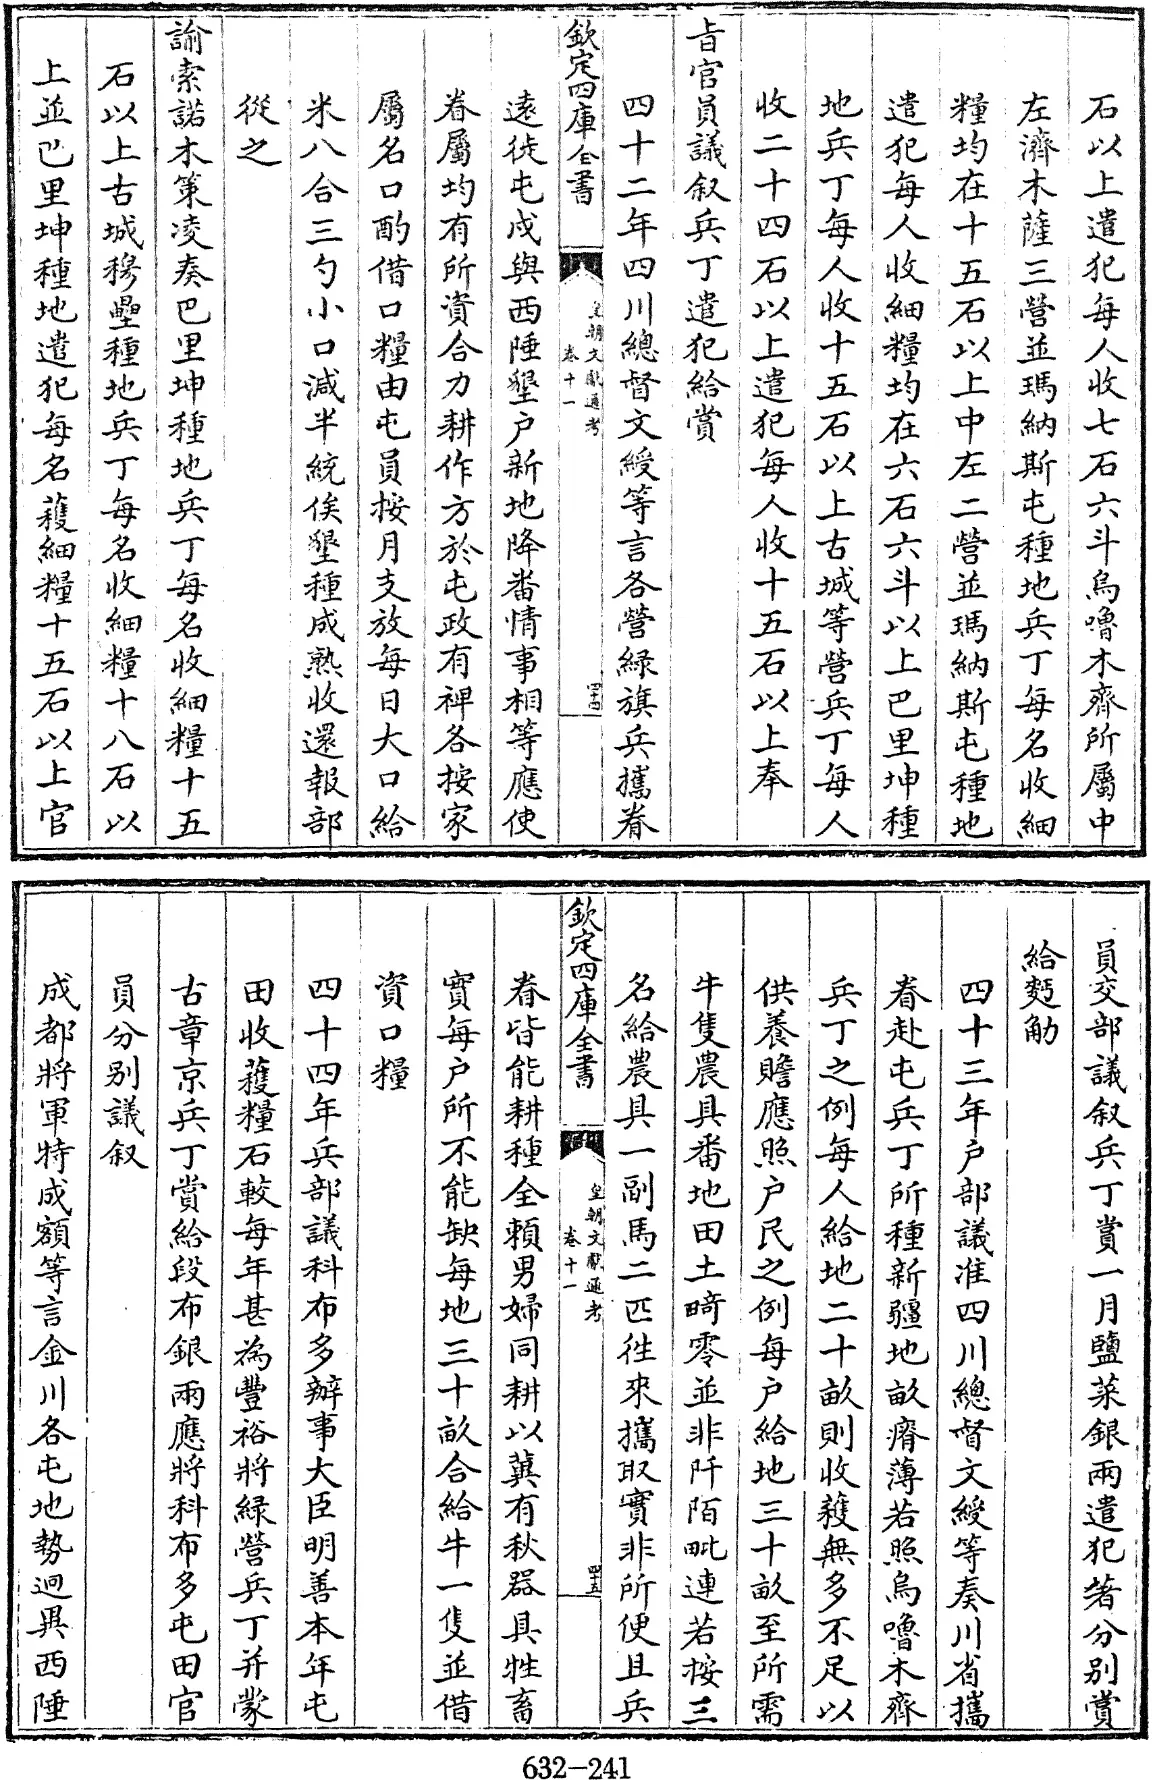 石以上遣犯每人收七石六斗烏嚕木齊所屬中
左濟木薩三營並瑪納斯屯種地兵丁每名收細
糧均在十五石以上中左二營並瑪納斯屯種地
遣犯每人收細糧均在六石六斗以上巴里坤種
地兵丁每人收十五石以上古城等營兵丁每人
收二十四石以上遣犯每人收十五石以上奉
旨官員議叙兵丁遣犯給賞
四十二年四川總督文綬等言各營綠旗兵攜眷
欽定四庫全書
皇朝文獻通考
卷十一
四十四
遠徙屯戍與西陲墾户新地降番情事相等應使
眷屬均有所資合力耕作方於屯政有裨各按家
屬名口酌借口糧由屯員按月支放每日大口給
米八合三勺小口減半統俟墾種成熟收還報部
從之
諭索諾木策凌奏巴里坤種地兵丁每名收細糧十五
石以上古城穆壘種地兵丁每名收細糧十八石以
上並巴里坤種地遣犯每名穫細糧十五石以上官
員交部議叙兵丁賞一月鹽菜銀兩遣犯著分别賞
給麪觔
四十三年户部議准四川總督文綬等奏川省攜
眷赴屯兵丁所種新疆地畝瘠薄若照烏嚕木齊
兵丁之例每人給地二十畝則收穫無多不足以
供養贍應照户民之例每户給地三十畝至所需
牛隻農具番地田土畸零並非阡陌毗連若按三
名給農具一副馬二匹徃來攜取實非所便且兵
欽定四庫全書
皇朝文獻通考
卷十一
四十五
眷皆能耕種全賴男婦同耕以冀有秋器具牲畜
實每户所不能缺每地三十畝合給牛一隻並借
資口糧
四十四年兵部議科布多辦事大臣明善本年屯
田收穫糧石較每年甚為豐裕將緑營兵丁并蒙
古章京兵丁賞給段布銀兩應將科布多屯田官
員分别議叙
成都將軍特成額等言金川各屯地勢迥異西陲
632-241